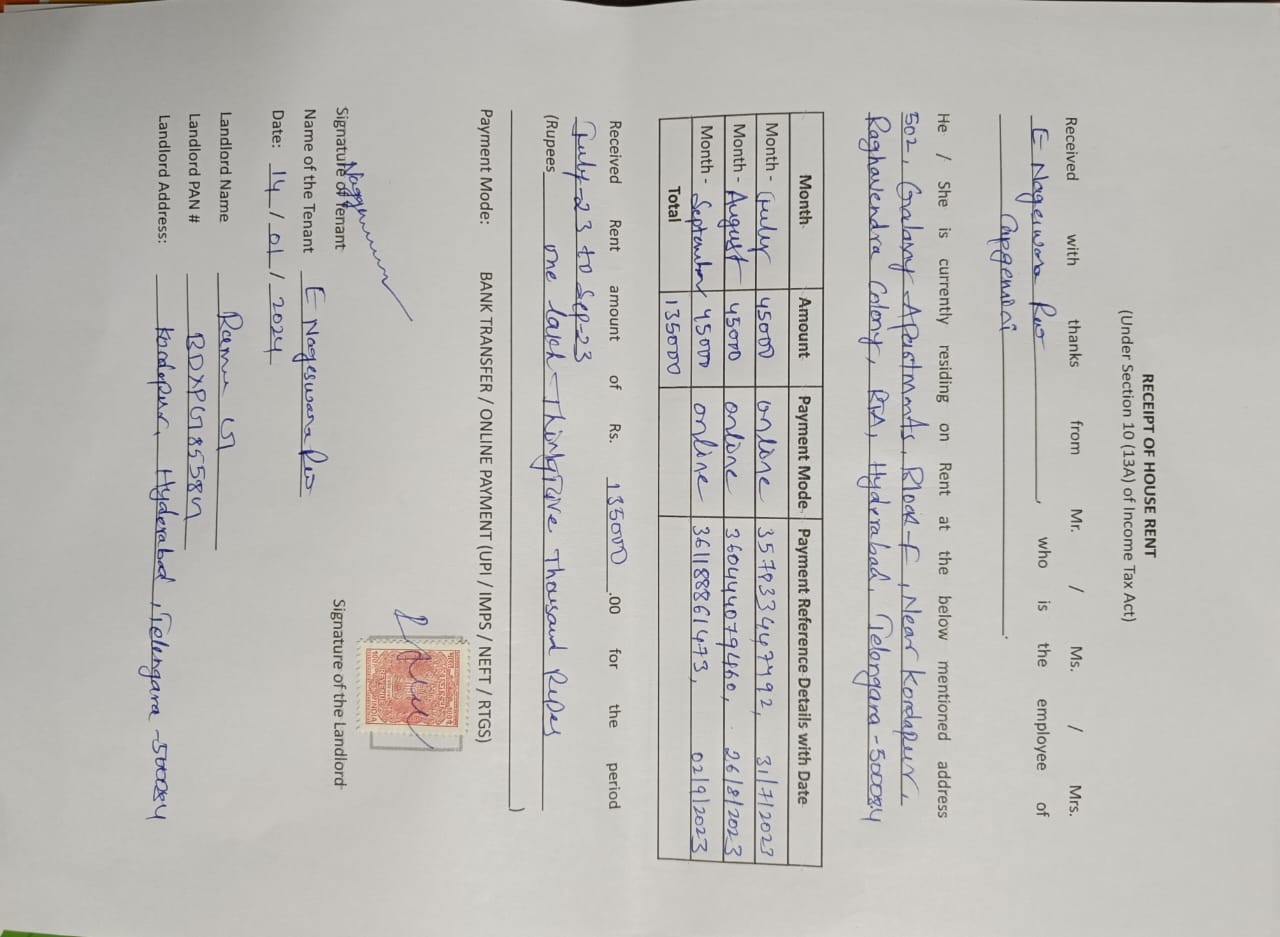 RECEIPT OF HOUSE RENT
(Under Section 10 (13A) of Income Tax Act)
Received with thanks from Mr. / Ms. / Mrs.
E Nageswara Rao, who is the employee of
Capgemini.
He / She is currently residing on Rent at the below mentioned address
502, Galaxy Apartments, Block-F, Near Kondapur,
Raghavendra Colony, RTA, Hyderabad, Telengara - 500084
Month Amount Payment Mode Payment Reference Details with Date
Month - July 45000 online 357833447792, 31/7/2023
Month - August 45000 online 360444079460, 26/8/2023
Month - September 45000 online 361188861473, 02/9/2023
Total 135000
Received Rent amount of Rs. 135000.00 for the period
July-23 to Sep-23
(Rupees one lakh Thousand
)
Payment Mode: BANK TRANSFER / ONLINE PAYMENT (UPI / IMPS / NEFT / RTGS)
REVENUE
INDIA
Signature of Tenant Signature of the Landlord
Name of the Tenant E Nageswara Rao
Date: 14/01/2024
Landlord Name Ramu G
Landlord PAN # BDXPG8558G
Landlord Address: Kondapur, Hyderabad, Telengara - 500084